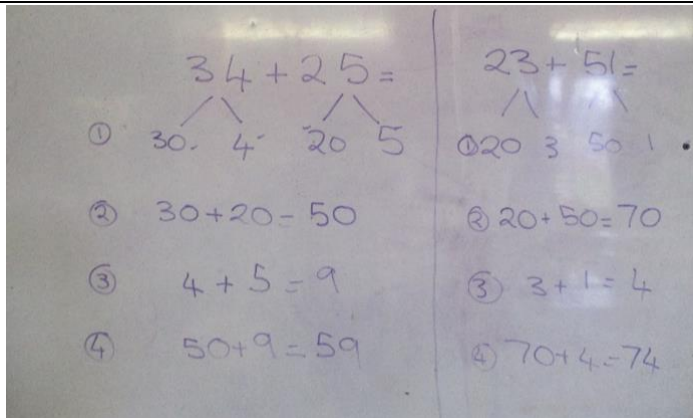 34+25=
① 30 4 20 5
② 30+20=50
③ 4+5=9
④ 50+9=59
23+51=
① 20 3 50 1
② 20+50=70
③ 3+1=4
④ 70+4=74